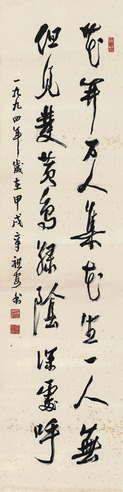 花開万人集花盡一人無
但見雙黃鳥綠陰深處呼
一九九四年歲在甲戌辛祖宏书